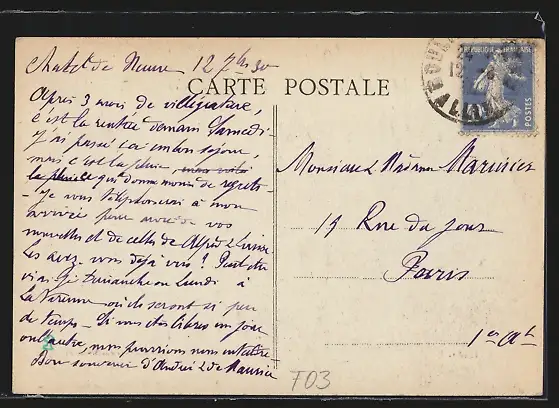 Chatel de Neuvre 12 7bre 30
CARTE POSTALE
Après 3 mois de villégiature,
c'est la rentrée demain Samedi -
J'ai passé ici un bon séjour,
mais c'est la pluie
la pluie qui donne moins de regrets -
Je vous téléphonerai à mon
arrivée pour avoir de vos
nouvelles et de celles de Alfred & Louise
Les avez vous déjà vus ? Peut être
irai-je dimanche ou lundi à
La Varenne où ils seront si peu
de temps - Si vous êtes libres un jour
ou l'autre, nous pourrions nous entendre
Bon souvenir d'André & de Maurice
REPUBLIQUE FRANÇAISE
POSTES
ALLIER
Monsieur & Madame Maurices
15 Rue du Jour
Paris
1er Art
F03